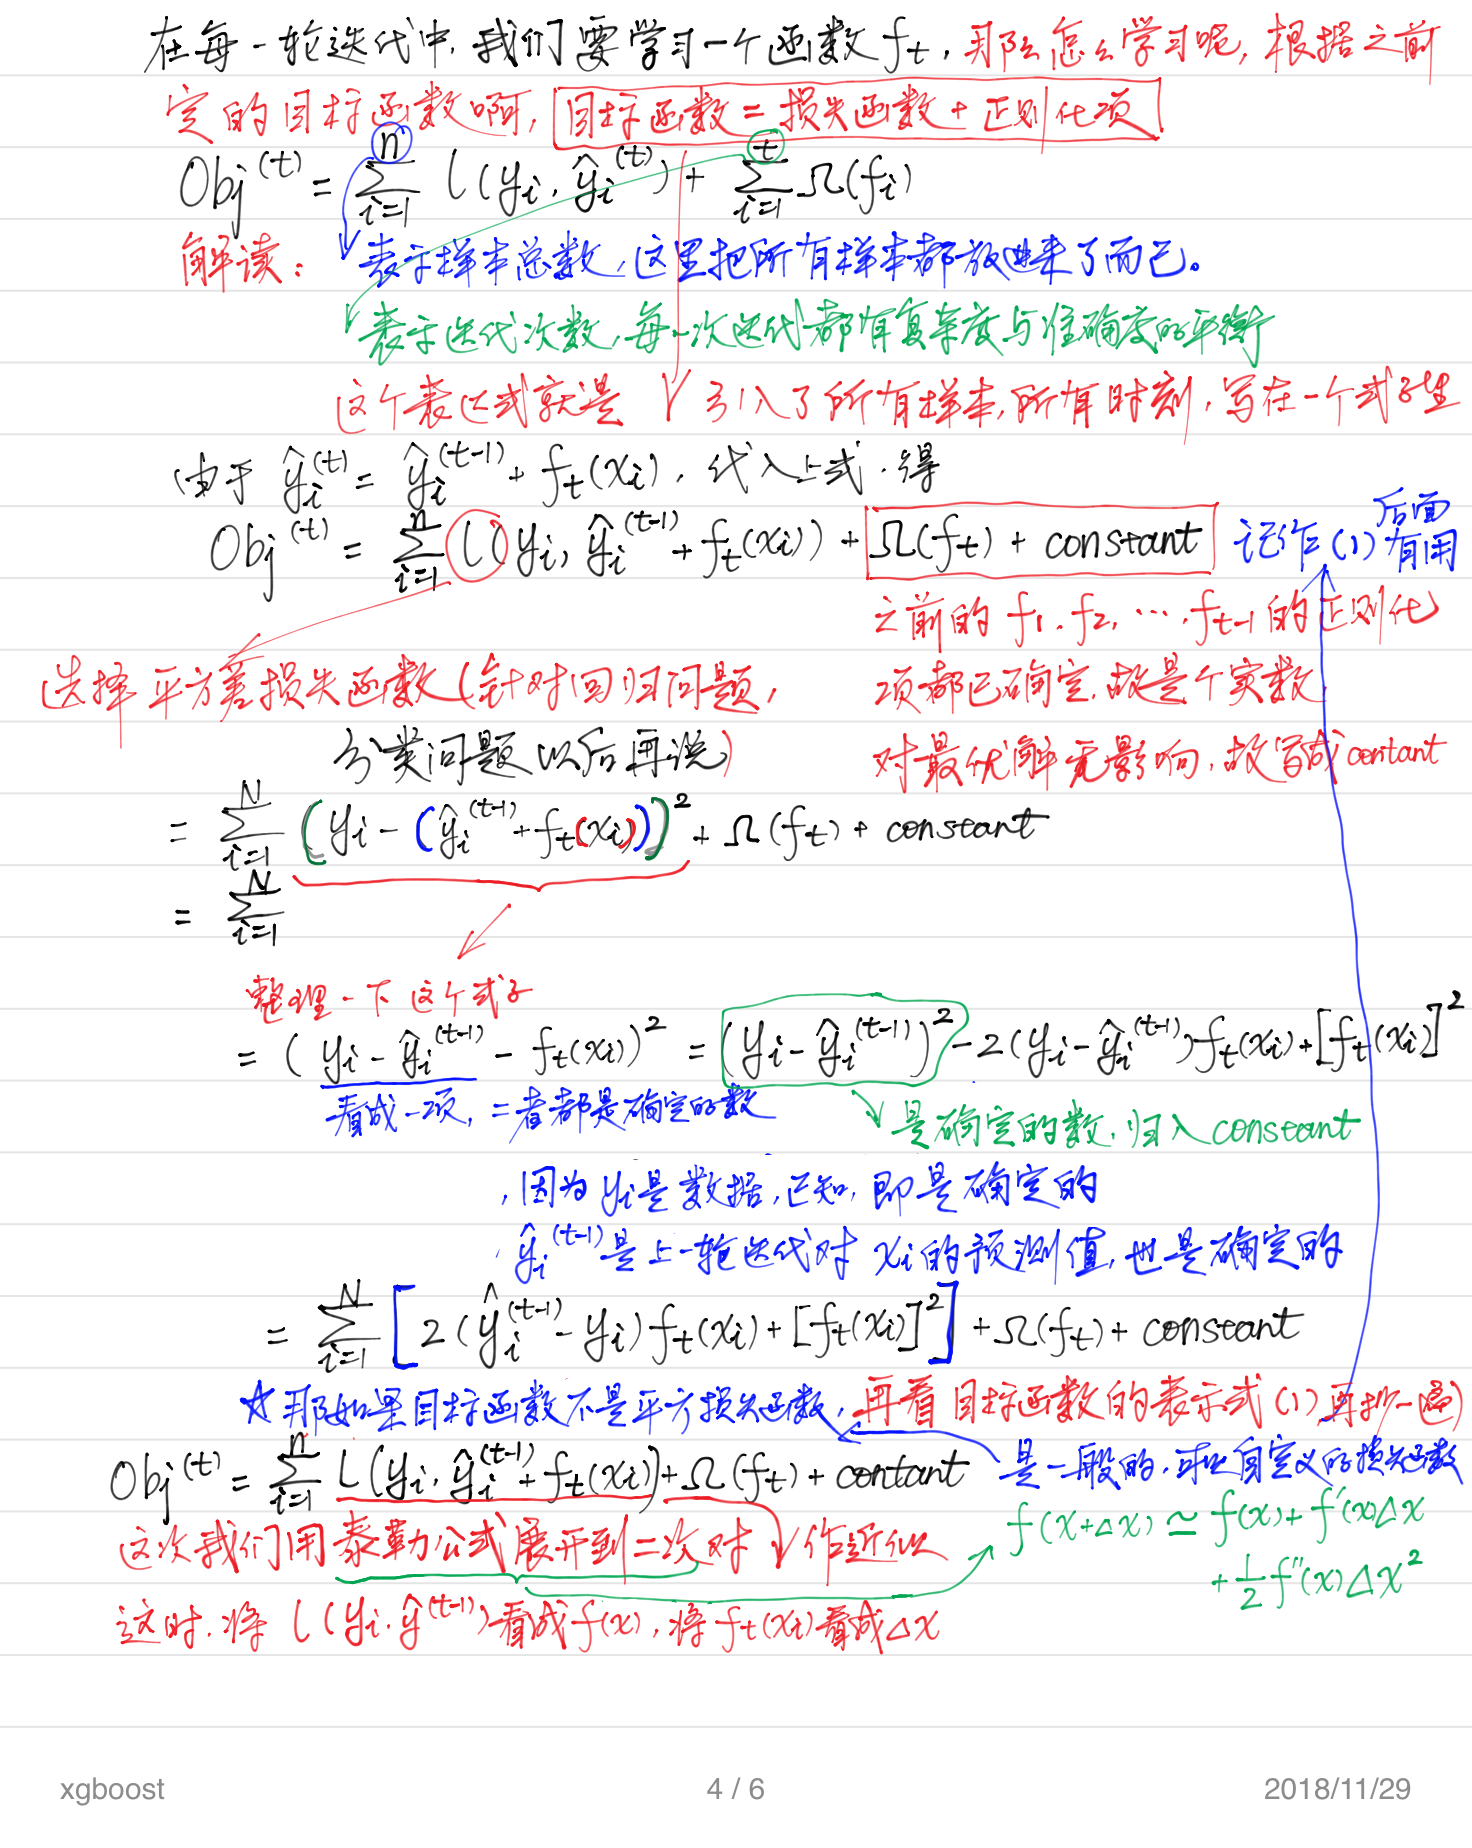 在每一轮迭代中,我们要学习一个函数 f_t,那么怎么学习呢,根据之前
定的目标函数啊, 目标函数 = 损失函数 + 正则化项
Obj^(t) = Σ_{i=1}^{n} l(y_i, ŷ_i^(t)) + Σ_{i=1}^{t} Ω(f_i)
解读: 表示样本总数,这里把所有样本都放进来了而已。
表示迭代次数,每一次迭代都有复杂度与准确度的平衡
这个表达式就是 引入了所有样本,所有时刻,写在一个式子里
由于 ŷ_i^(t) = ŷ_i^(t-1) + f_t(x_i), 代入上式,得
Obj^(t) = Σ_{i=1}^{n} l(y_i, ŷ_i^(t-1) + f_t(x_i)) + Ω(f_t) + constant 记作(1) 后面有用
之前的 f_1, f_2, …, f_{t-1} 的正则化
选择平方差损失函数(针对回归问题, 项都已确定,故是个实数,
分类问题以后再说) 对最优解无影响,故写成 contant
= Σ_{i=1}^{N} (y_i - (ŷ_i^(t-1) + f_t(x_i)))^2 + Ω(f_t) + constant
= Σ_{i=1}^{N}
整理一下这个式子
= (y_i - ŷ_i^(t-1) - f_t(x_i))^2 = (y_i - ŷ_i^(t-1))^2 - 2(y_i - ŷ_i^(t-1))f_t(x_i) + [f_t(x_i)]^2
看成一项, 二者都是确定的数
是确定的数,归入 constant
,因为 y_i 是数据,已知,即是确定的
ŷ_i^(t-1) 是上一轮迭代对 x_i 的预测值,也是确定的
= Σ_{i=1}^{N} [2(ŷ_i^(t-1) - y_i) f_t(x_i) + [f_t(x_i)]^2] + Ω(f_t) + constant
☆ 那如果目标函数不是平方损失函数,再看目标函数的表示式(1)再抄一遍)
Obj^(t) = Σ_{i=1}^{n} L(y_i, ŷ_i^(t-1) + f_t(x_i)) + Ω(f_t) + contant 是一般的,可以自定义的损失函数
这次我们用泰勒公式展开到二次对 作近似 f(x+Δx) ≃ f(x) + f'(x)Δx
+ 1/2 f''(x)Δx^2
这时,将 l(y_i, ŷ^(t-1)) 看成 f(x), 将 f_t(x_i) 看成 Δx
xgboost 4 / 6 2018/11/29